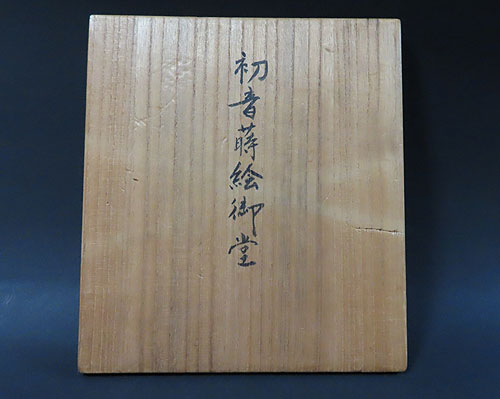 初音蒔絵御堂